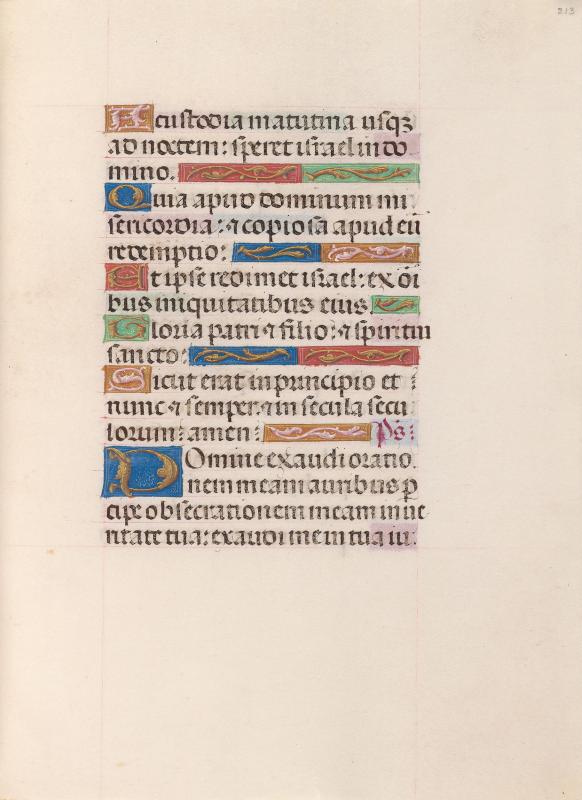 213
A custodia matutina usqz
ad noctem: speret israel in do
mino.
Quia apud dominum mi
sericordia: ⁊ copiosa apud eū
redemptio:
Et ipse redimet israel: ex oī
bus iniquitatibus eius.
Gloria patri ⁊ filio: ⁊ spiritui
sancto:
Sicut erat in principio et
nunc ⁊ semper. ⁊ in secula secu
lorum: amen: Ps:
Domine exaudi oratio.
nem meam auribus ꝑ
cipe obsecrationem meam in ue
ritate tua: exaudi me in tua iu.